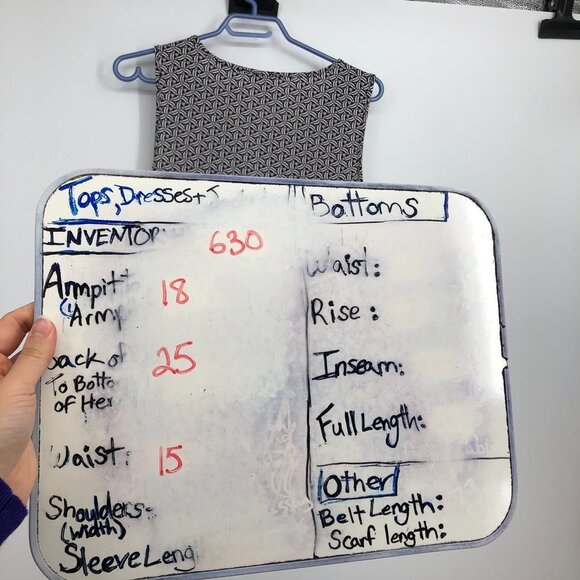 Tops, Dresses+
INVENTOR
630
Armpit
18
Armp
Back of
25
To Botto
of Her
Waist:
15
Shoulders-
(width)
SleeveLeng
Bottoms
Waist:
Rise:
Inseam:
Full Length:
Other
Belt Length:
Scarf length: